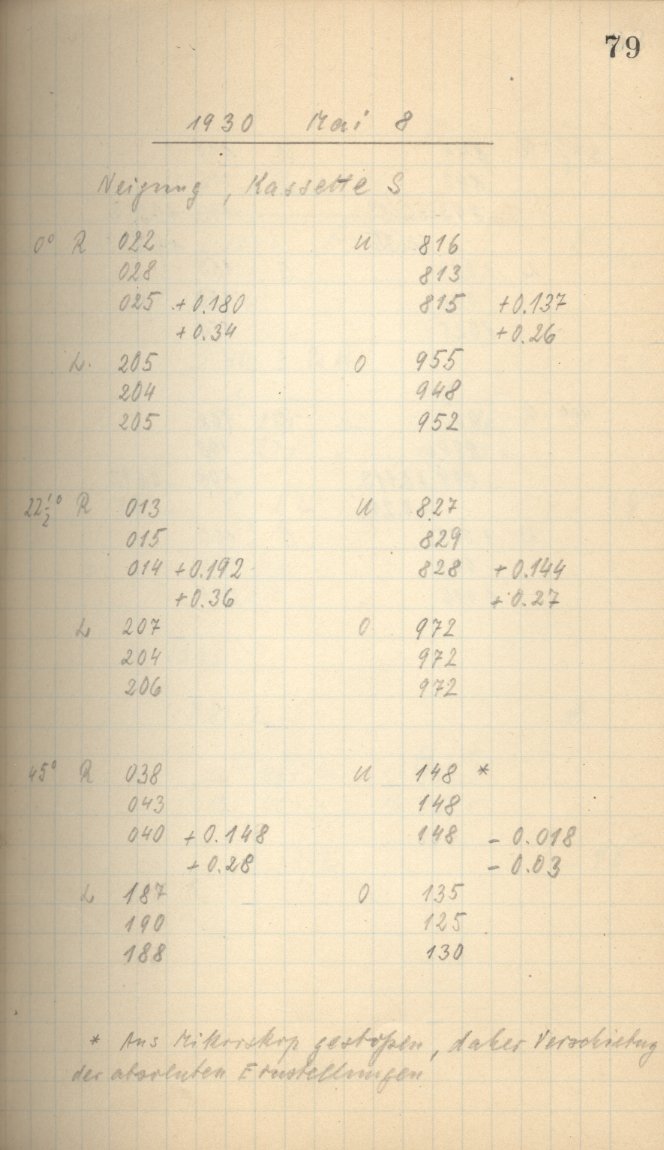 79
1930 Mai 8
Neigung, Kassette S
0° R 022 U 816
028 813
025 +0.180 815 +0.137
+0.34 +0.26
L. 205 O 955
204 948
205 952
22½° R 013 U 827
015 829
014 +0.192 828 +0.144
+0.36 +0.27
L 207 O 972
204 972
206 972
45° R 038 U 148 *
043 148
040 +0.148 148 - 0.018
+0.28 - 0.03
L 187 O 135
190 125
188 130
* Ans Mikroskop gestoßen, daher Verschiebung
der absoluten Einstellungen